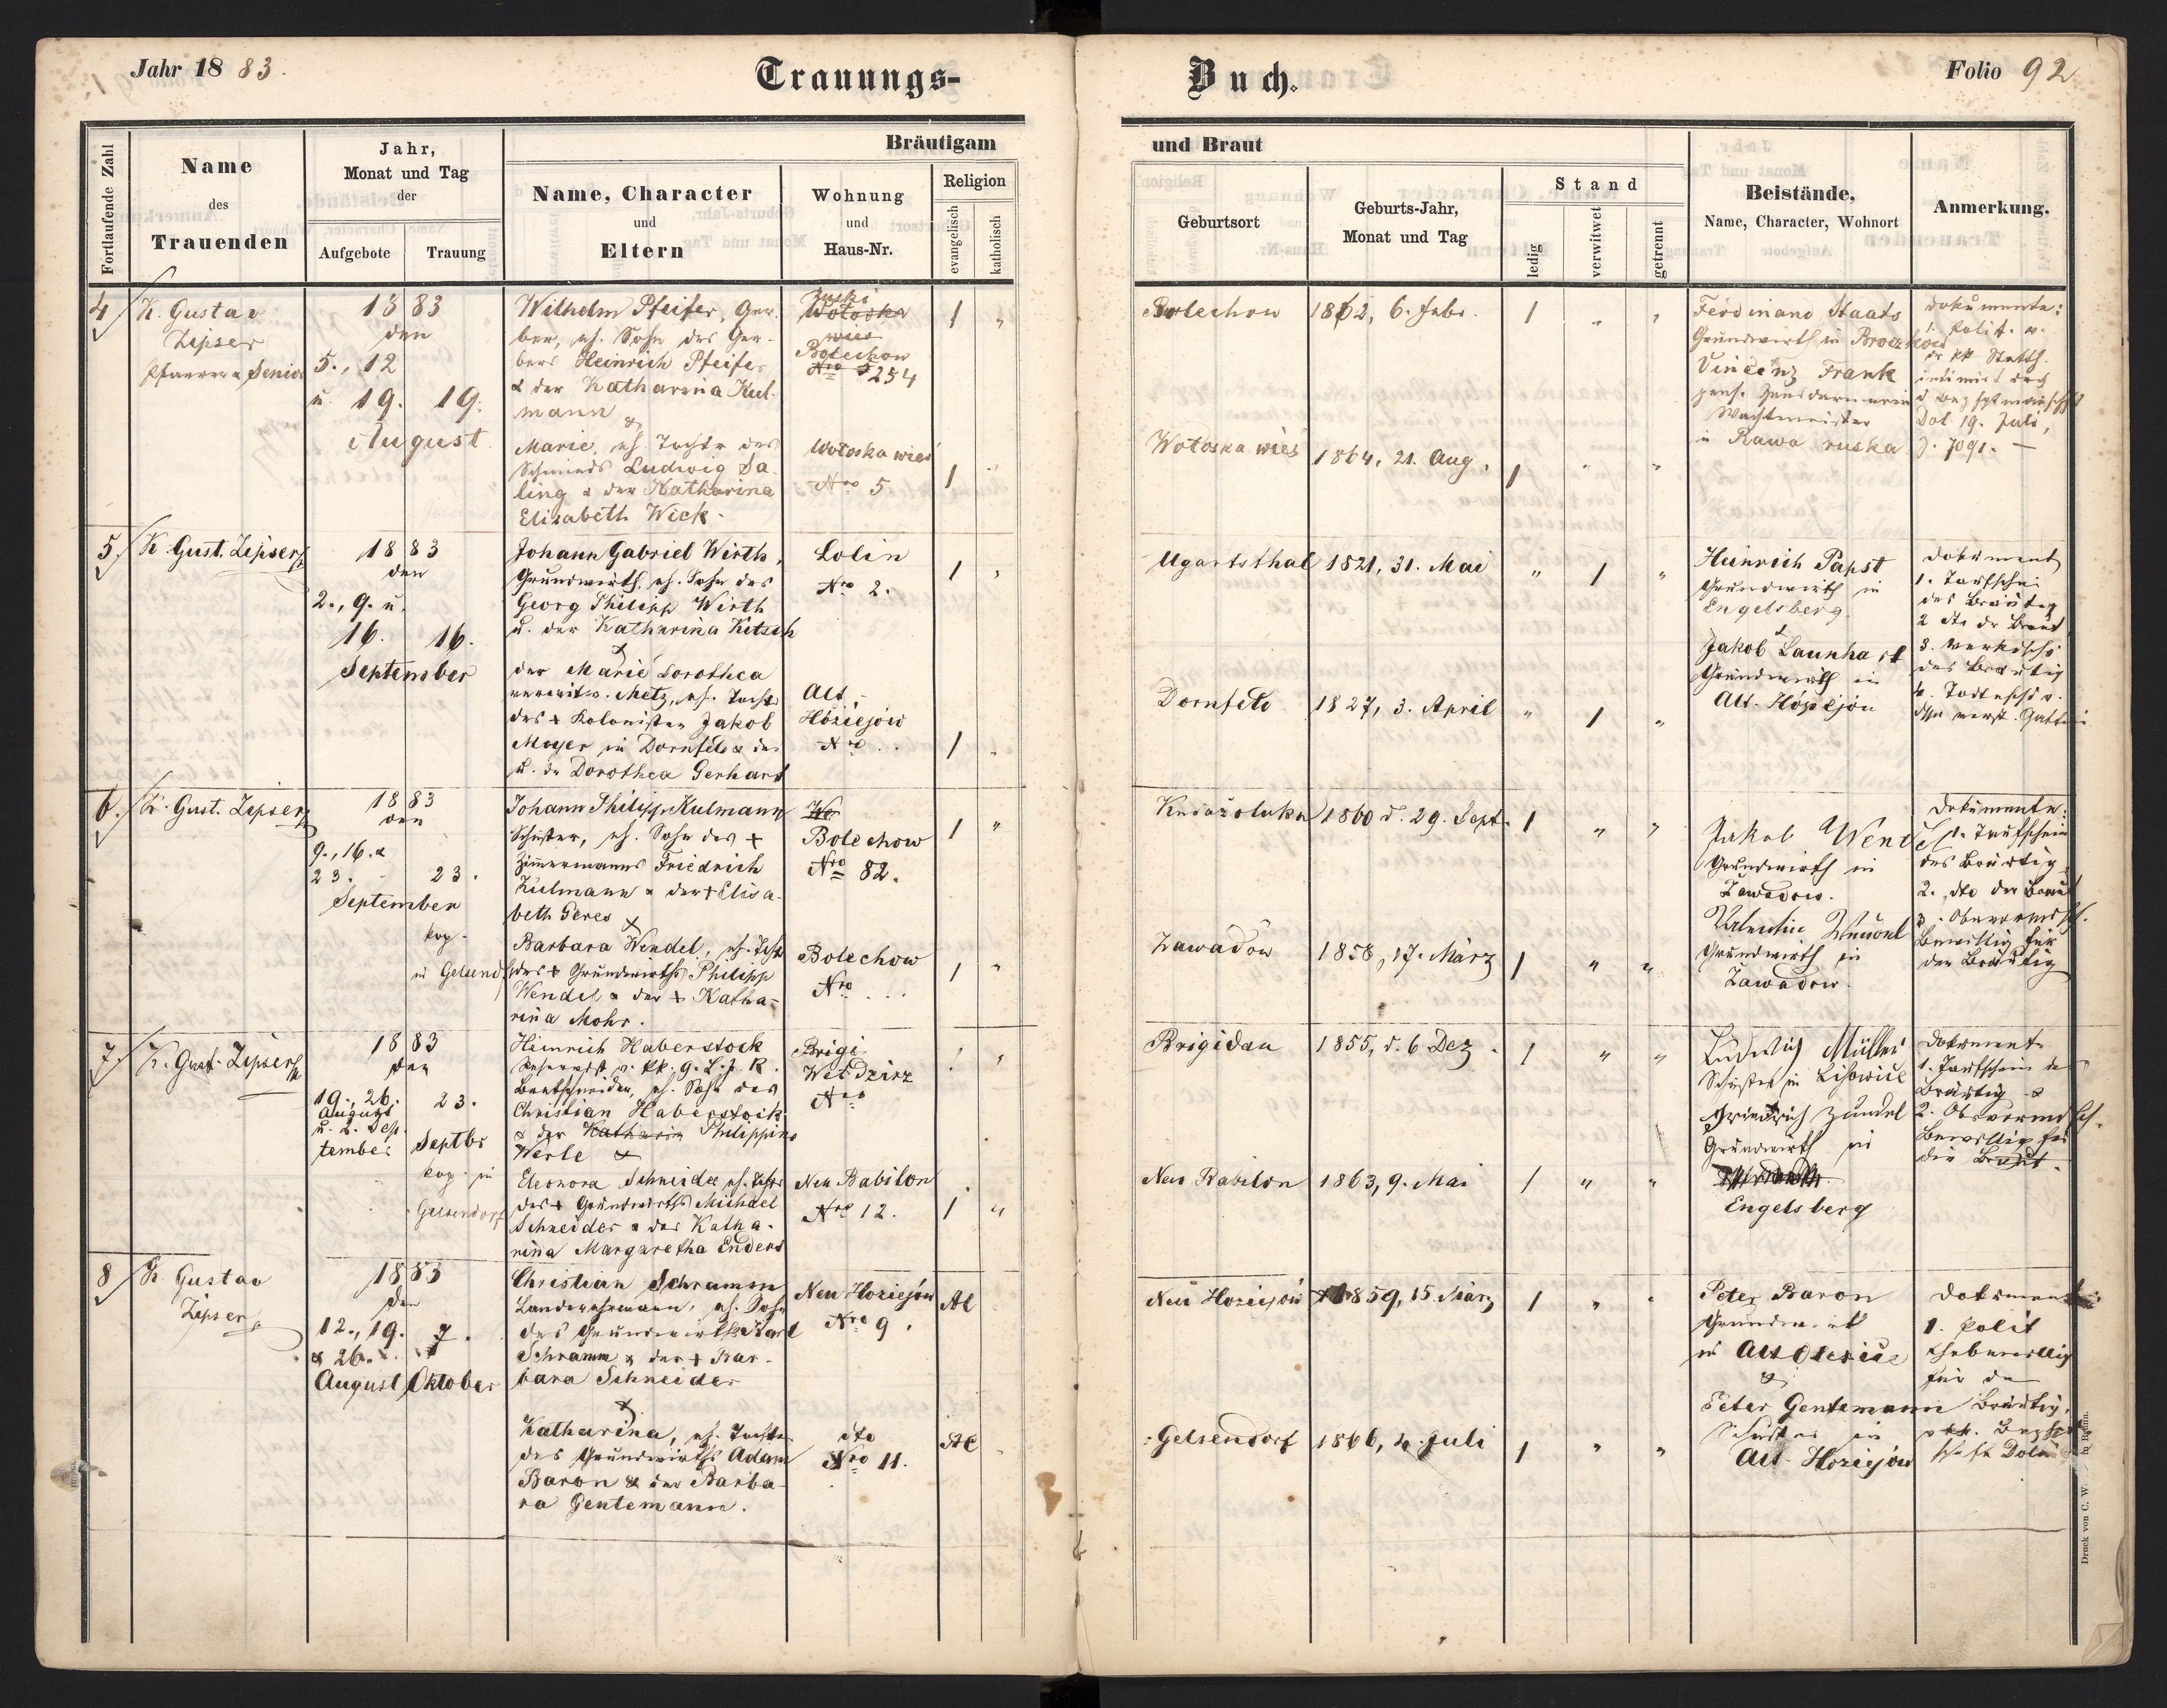 Jahr 1883.
Trauungs-
Buch.
Folio 92
Bräutigam
und Braut
Fortlaufende Zahl
Name
des
Trauenden
Jahr,
Monat und Tag
der
Aufgebote
Trauung
Name, Character
und
Eltern
Wohnung
und
Haus-Nr.
Religion
evangelisch
katholisch
Geburtsort
Geburts-Jahr,
Monat und Tag
Stand
ledig
verwitwet
getrennt
Beistände,
Name, Character, Wohnort
Anmerkung.
4
K. Gustav
Zipser
Pfarrer & Senior
1883
den
5., 12
u. 19. 19.
August
Wilhelm Pfeifer, Ger-
ber, eh. Sohn des Ger-
bers Heinrich Pfeifer
& der Katharina Kul-
mann
&
Marie, eh. Tochter des
Schmieds Ludwig Da-
ling & der Katharina
Elisabeth Wick.
Wołoska
wies
Bolechow
Nro 254
Wołoska wieś
Nro 5
1 "
1 "
Bolechow
1862, 6. Febr.
1 " "
Wołoska wieś
1864, 21. Aug.
1 " "
Ferdinand Staats
Grundwirth in Broczkow
Vincenz Frank
pens. Gendarmerie
Wachtmeister
in Rawa ruska
Dokumente:
1. Polit.
Statth.
Dol. 19. Juli,
Z. 7091. —
5.
K. Gust. Zipser
1883
den
2., 9. u.
16. 16.
September
Johann Gabriel Wirth,
Grundwirth, eh. Sohn des
Georg Philipp Wirth
u. der Katharina Kitsch
&
der Marie Dorothea
verwitw. Metz, eh. Tocht.
des + Kolonisten Jakob
Moyer in Dornfeld & der
u. der Dorothea Gerhard
Dolin
Nro 2.
Alt-
Hoziejow
Nro ..
1 "
1 "
Ugartsthal
1821, 31. Mai
" 1 "
Dornfeld
1827, 3. April
" 1 "
Heinrich Papst
Grundwirth in
Engelsberg.
&
Jakob Launhardt
Grundwirth in
Alt-Hoziejow
Dokument
1. Taufschei
des Bräutig
2 dto der Braut
3. Verkdschei
des Bräutig
4. Todtesschei v.
verst. Gattin
6.
K. Gust. Zipser
1883
den
9., 16. &
23. 23.
September
kop.
in Gelsendf
Johann Philipp Kulmann
Schuster, eh. Sohn des +
Zimmermanns Friedrich
Kulmann & der + Elisa-
beth Geres
&
Barbara Wendel, eh. Tocht
des + Grundwirths Philipp
Wendel & der + Katha-
rina Mohr.
Wo
Bolechow
Nro 82.
Bolechow
Nro ...
1 "
1 "
Kniazoluka
1860 d. 29. Sept.
1 " "
Zawadow
1858, 17. März
1 " "
Jakob Wendel
Grundwirth in
Zawadow.
Valentin Wendel
Grundwirth in
Zawadow.
Dokumente:
1. Taufschein
des Bräutig.
2. dto der Braut
3. Obervormdsch.
Bewillig für
den Bräutig
7.
K. Gust. Zipser
1883
den
19., 26. 23.
August
u. 2. Sep-
tember Septbr
kop. in
Gelsendorf
Heinrich Haberstock
Reservist
Brettschneider, eh. Sohn des
Christian Haberstock
& der Katharin Philippine
Werle &
Eleonora Schneider eh. Tocht
des + Grundwirths Michael
Schneider & der Katha-
rina Margaretha Enders
Brigi
Weldzirz
Nro
Neu Babilon
Nro 12.
1 "
1 "
Brigidau
1855, d. 6 Dez.
1 " "
Neu Babilon
1863, 9. Mai
1 " "
Ludwig Müller
Schuster in Lisowice
Friedrich Zundel
Grundwirth in
Engelsberg
Dokument
1. Taufschein de
Bräutig &
2. Obervormdsch.
Bewillig für
die Braut.
8
K. Gustav
Zipser
1883
den
12., 19. 7.
& 26.
August Oktober
Christian Schramm
Landwehrmann, eh. Sohn
des Grundwirths Karl
Schramm & der + Bar-
bara Schneider
&
Katharina, eh. Tochter
des Grundwirths Adam
Baron & der Barba-
ra Gentemann.
Neu Hoziejów
Nro 9.
dto
Nro 11.
AC
AC
Neu Hoziejów
1859, 15. März
1 " "
Gelsendorf
1866, 4. Juli
1 " "
Peter Baron
Grundwirth
in Alt Olesice
&
Peter Gentemann
Schuster in
Alt-Hoziejów
Dokument
1. Polit
Ehebewillig
für den
Bräutig.
Druck von C. W.